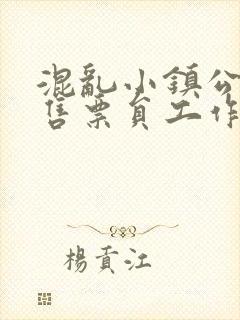 混亂小鎮公
售票員工作
楊貢江